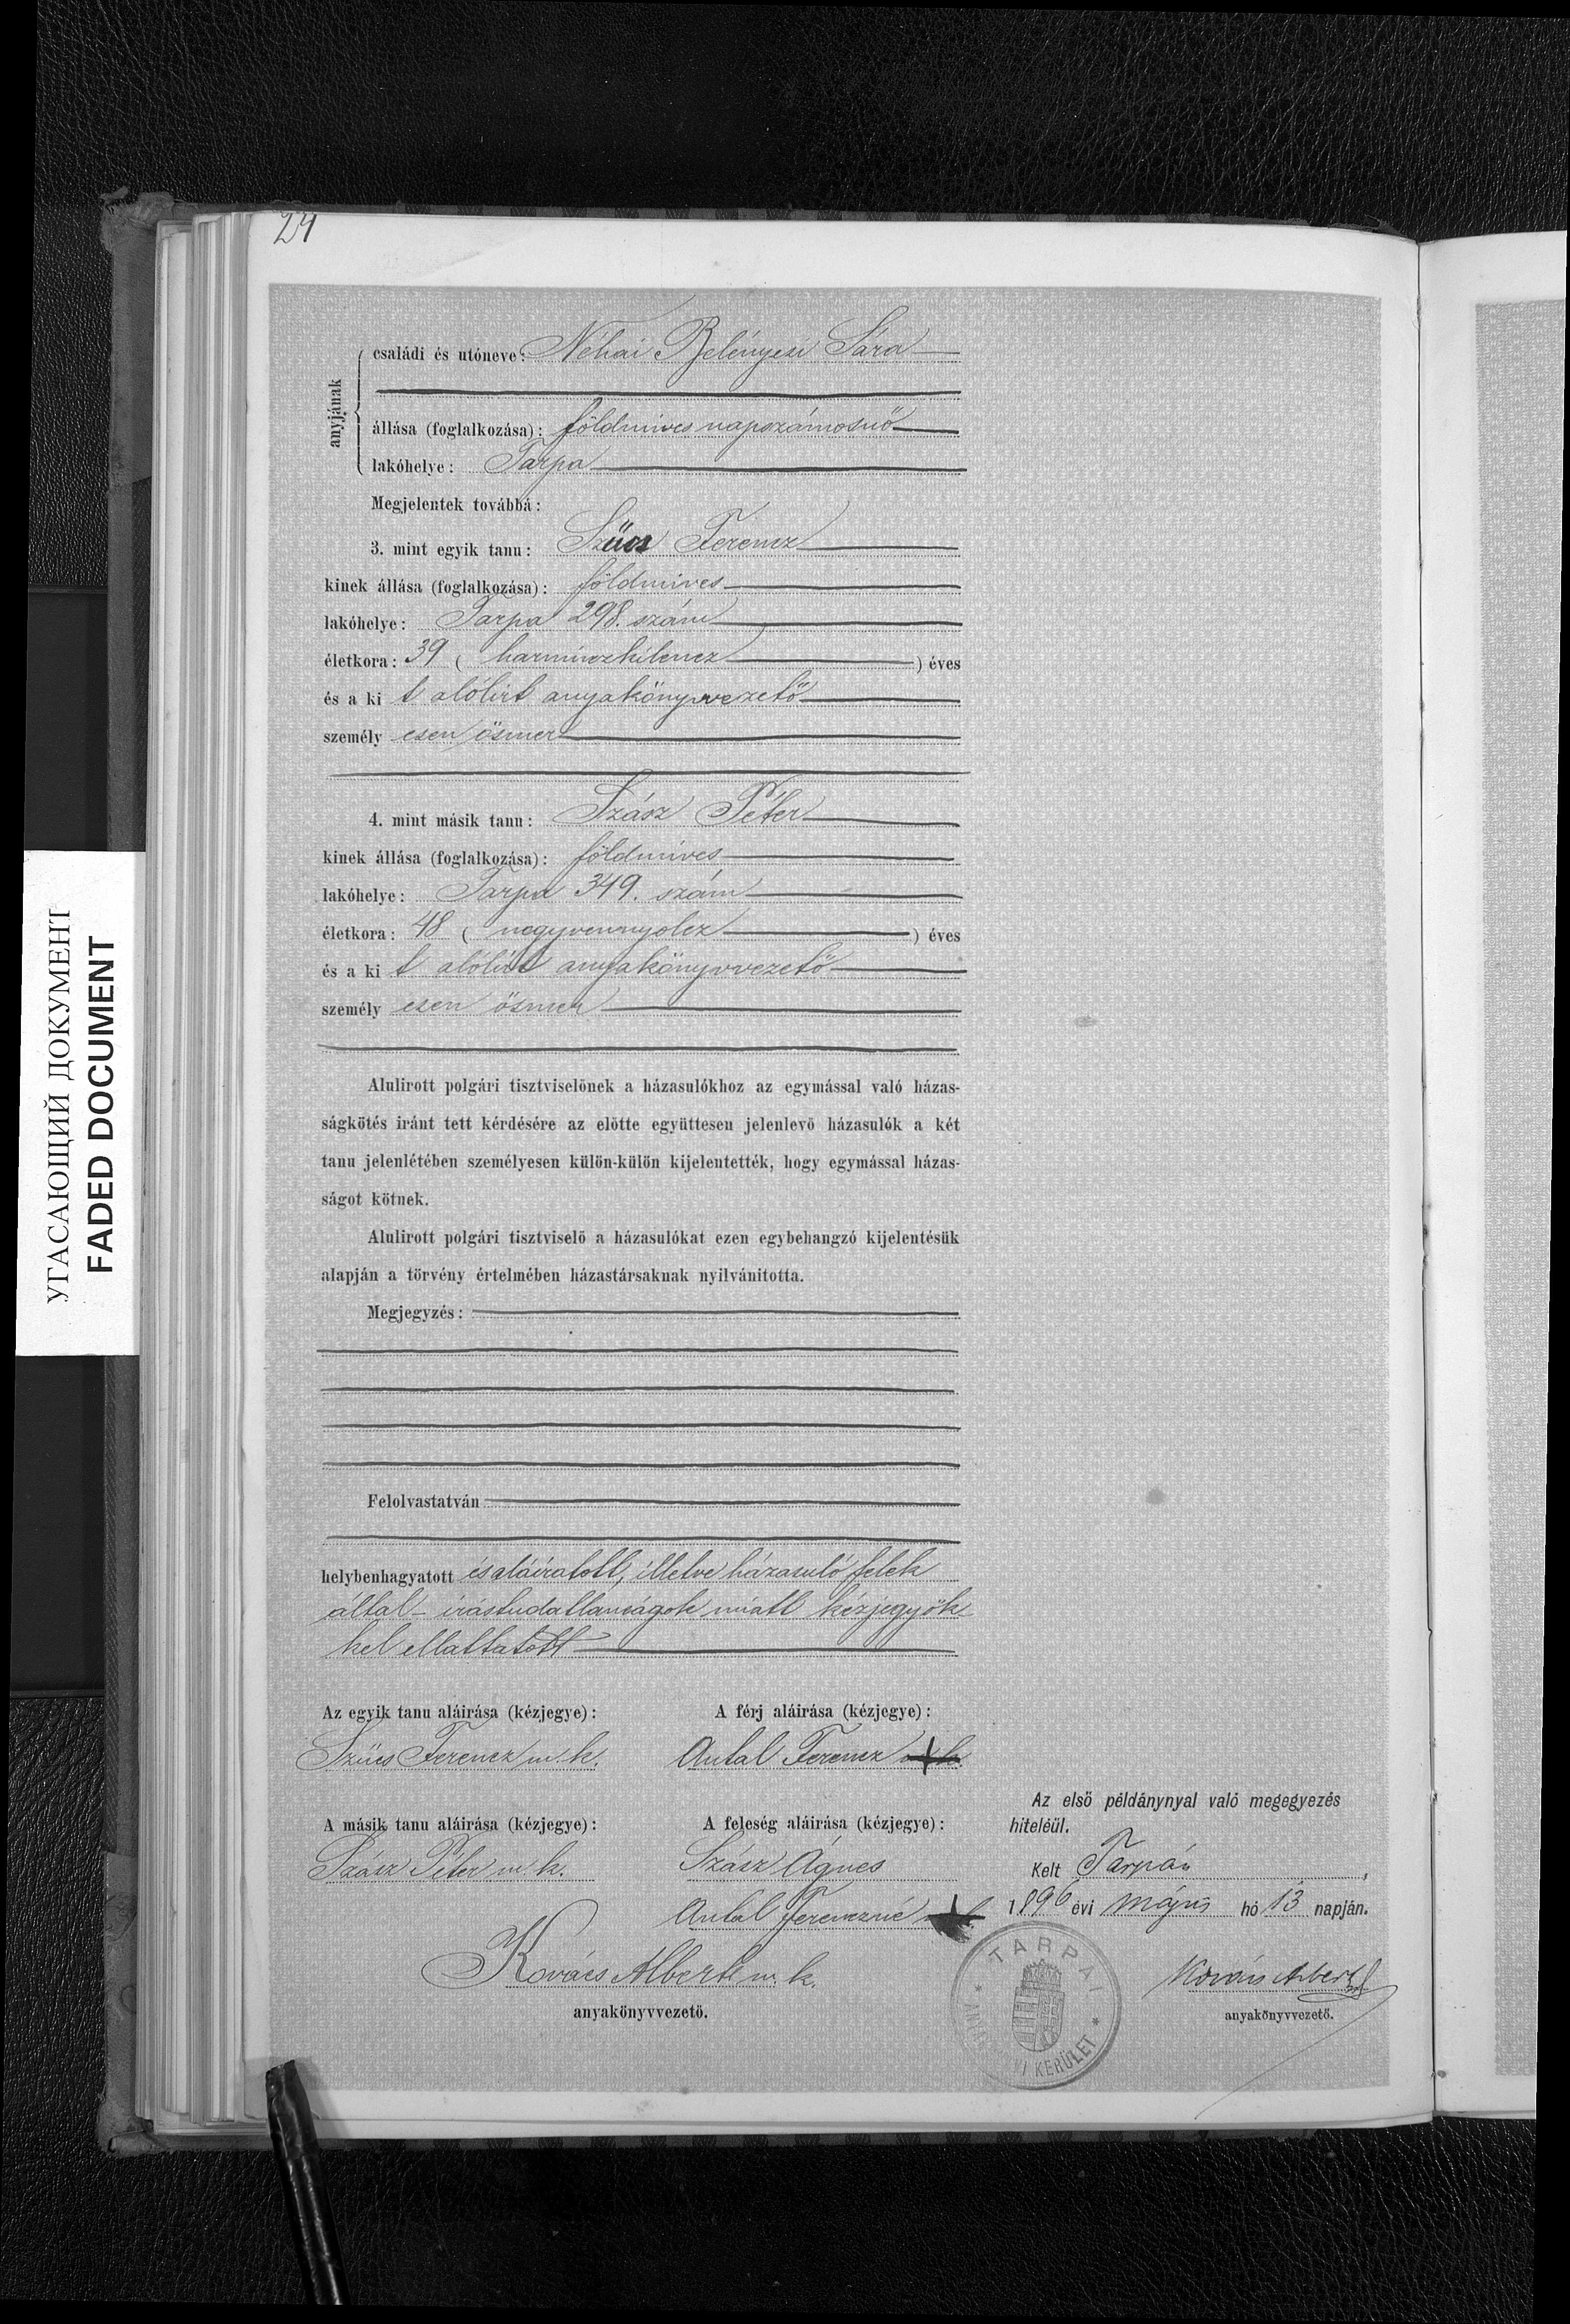 24
anyjának
családi és utóneve: Néhai Belényesi Sára
állása (foglalkozása): földmíves napszámosnő
lakóhelye: Tarpa
Megjelentek továbbá:
3. mint egyik tanu: Szűcs Ferencz
kinek állása (foglalkozása): földmíves
lakóhelye: Tarpa 298. szám
életkora: 39 ( harminczkilencz ) éves
és a ki t alólirt anyakönyvvezető
személy esen ösmer
4. mint másik tanu: Szász Péter
kinek állása (foglalkozása): földmíves
lakóhelye: Tarpa 349. szám
életkora: 48 ( negyvennyolcz ) éves
és a ki t alólirt anyakönyvvezető
személy esen ösmer
Alulirott polgári tisztviselőnek a házasulókhoz az egymással való házas-
ságkötés iránt tett kérdésére az előtte együttesen jelenlevő házasulók a két
tanu jelenlétében személyesen külön-külön kijelentették, hogy egymással házas-
ságot kötnek.
Alulirott polgári tisztviselő a házasulókat ezen egybehangzó kijelentésük
alapján a törvény értelmében házastársaknak nyilvánitotta.
Megjegyzés:
Felolvastatván
helybenhagyatott és aláiratott, illetve házasuló felek
által - irástudatlanságok miatt kézjegyök
kel ellattatott
Az egyik tanu aláirása (kézjegye): A férj aláirása (kézjegye):
Szücs Ferencz m. k. Antal Ferencz +
A másik tanu aláirása (kézjegye): A feleség aláirása (kézjegye):
Szász Péter m. k. Szász Ágnes
Antal Ferenczné +
Kovács Albert m. k.
anyakönyvvezető.
Az első példánynyal való megegyezés
hiteléül.
Kelt Tarpán,
1896 évi május hó 13 napján.
Kovács Albert
anyakönyvvezető.
TARPAI
KERÜLET
УГАСАЮЩИЙ ДОКУМЕНТ
FADED DOCUMENT